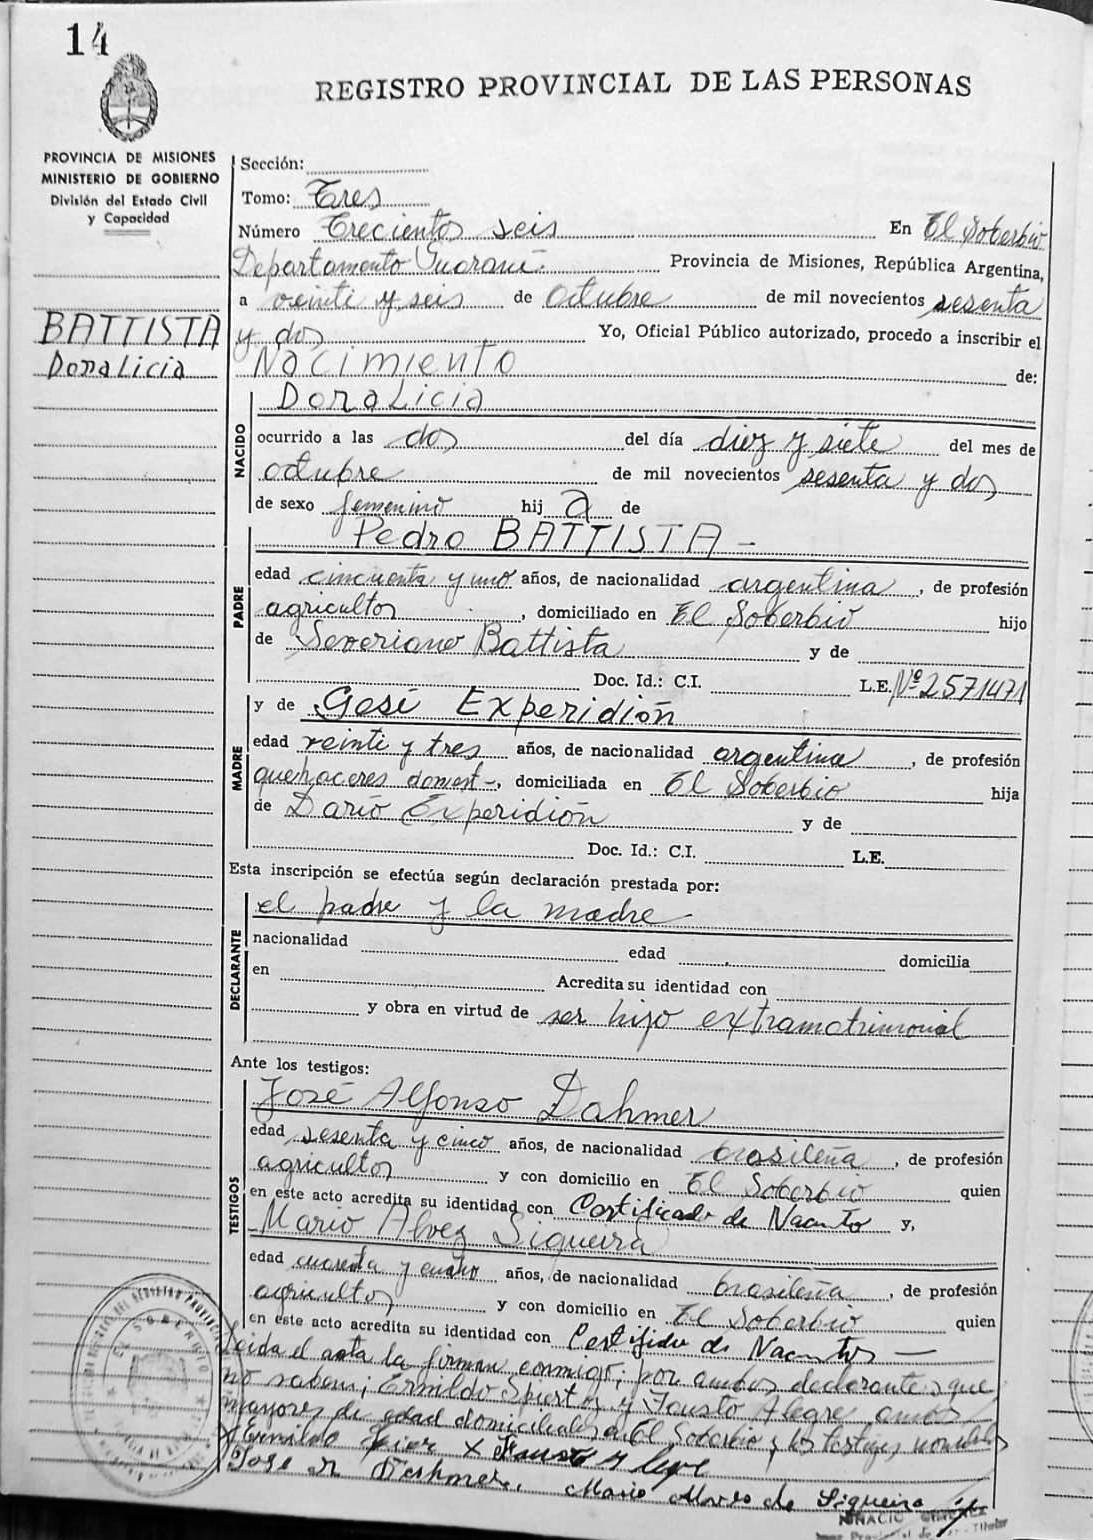 14
REGISTRO PROVINCIAL DE LAS PERSONAS
PROVINCIA DE MISIONES
MINISTERIO DE GOBIERNO
División del Estado Civil
y Capacidad
BATTISTA
Doralicia
Sección:
Tomo: Tres
Número Trecientos seis En El Soberbio
Departamento Guaraní Provincia de Misiones, República Argentina,
a veinti y seis de octubre de mil novecientos sesenta
y dos Yo, Oficial Público autorizado, procedo a inscribir el
Nacimiento de:
NACIDO
Doralicia
ocurrido a las dos del día diez y siete del mes de
octubre de mil novecientos sesenta y dos
de sexo femenino hij a de
PADRE
Pedro BATTISTA -
edad cincuenta y uno años, de nacionalidad argentina, de profesión
agricultor, domiciliado en El Soberbio hijo
de Severiano Battista y de
Doc. Id.: C.I. L.E. Nº 2571471
MADRE
y de Gesé Experidión
edad veinti y tres años, de nacionalidad argentina, de profesión
quehaceres domest-, domiciliada en El Soberbio hija
de Dario Experidión y de
Doc. Id.: C.I. L.E.
Esta inscripción se efectúa según declaración prestada por:
DECLARANTE
el padre y la madre
nacionalidad edad domicilia
en Acredita su identidad con
y obra en virtud de ser hijo extramatrimonial
Ante los testigos:
TESTIGOS
José Alfonso Dahmer
edad sesenta y cinco años, de nacionalidad brasileña, de profesión
agricultor y con domicilio en El Soberbio quien
en este acto acredita su identidad con Certificado de Nacnto y,
Mario Alvez Siqueira
edad cuarenta y cuatro años, de nacionalidad brasileña, de profesión
agricultor y con domicilio en El Soberbio quien
en este acto acredita su identidad con Certifido de Nacnto
Leida el acta la firman conmigo; por ambos declarantes que
no saben; Ermildo y Fausto Alegre ambos
mayores de edad domiciliados en El Soberbio y los testigos
Ermildo X Fausto
Jose Mario Alves de Siqueira
EL SOBERBIO